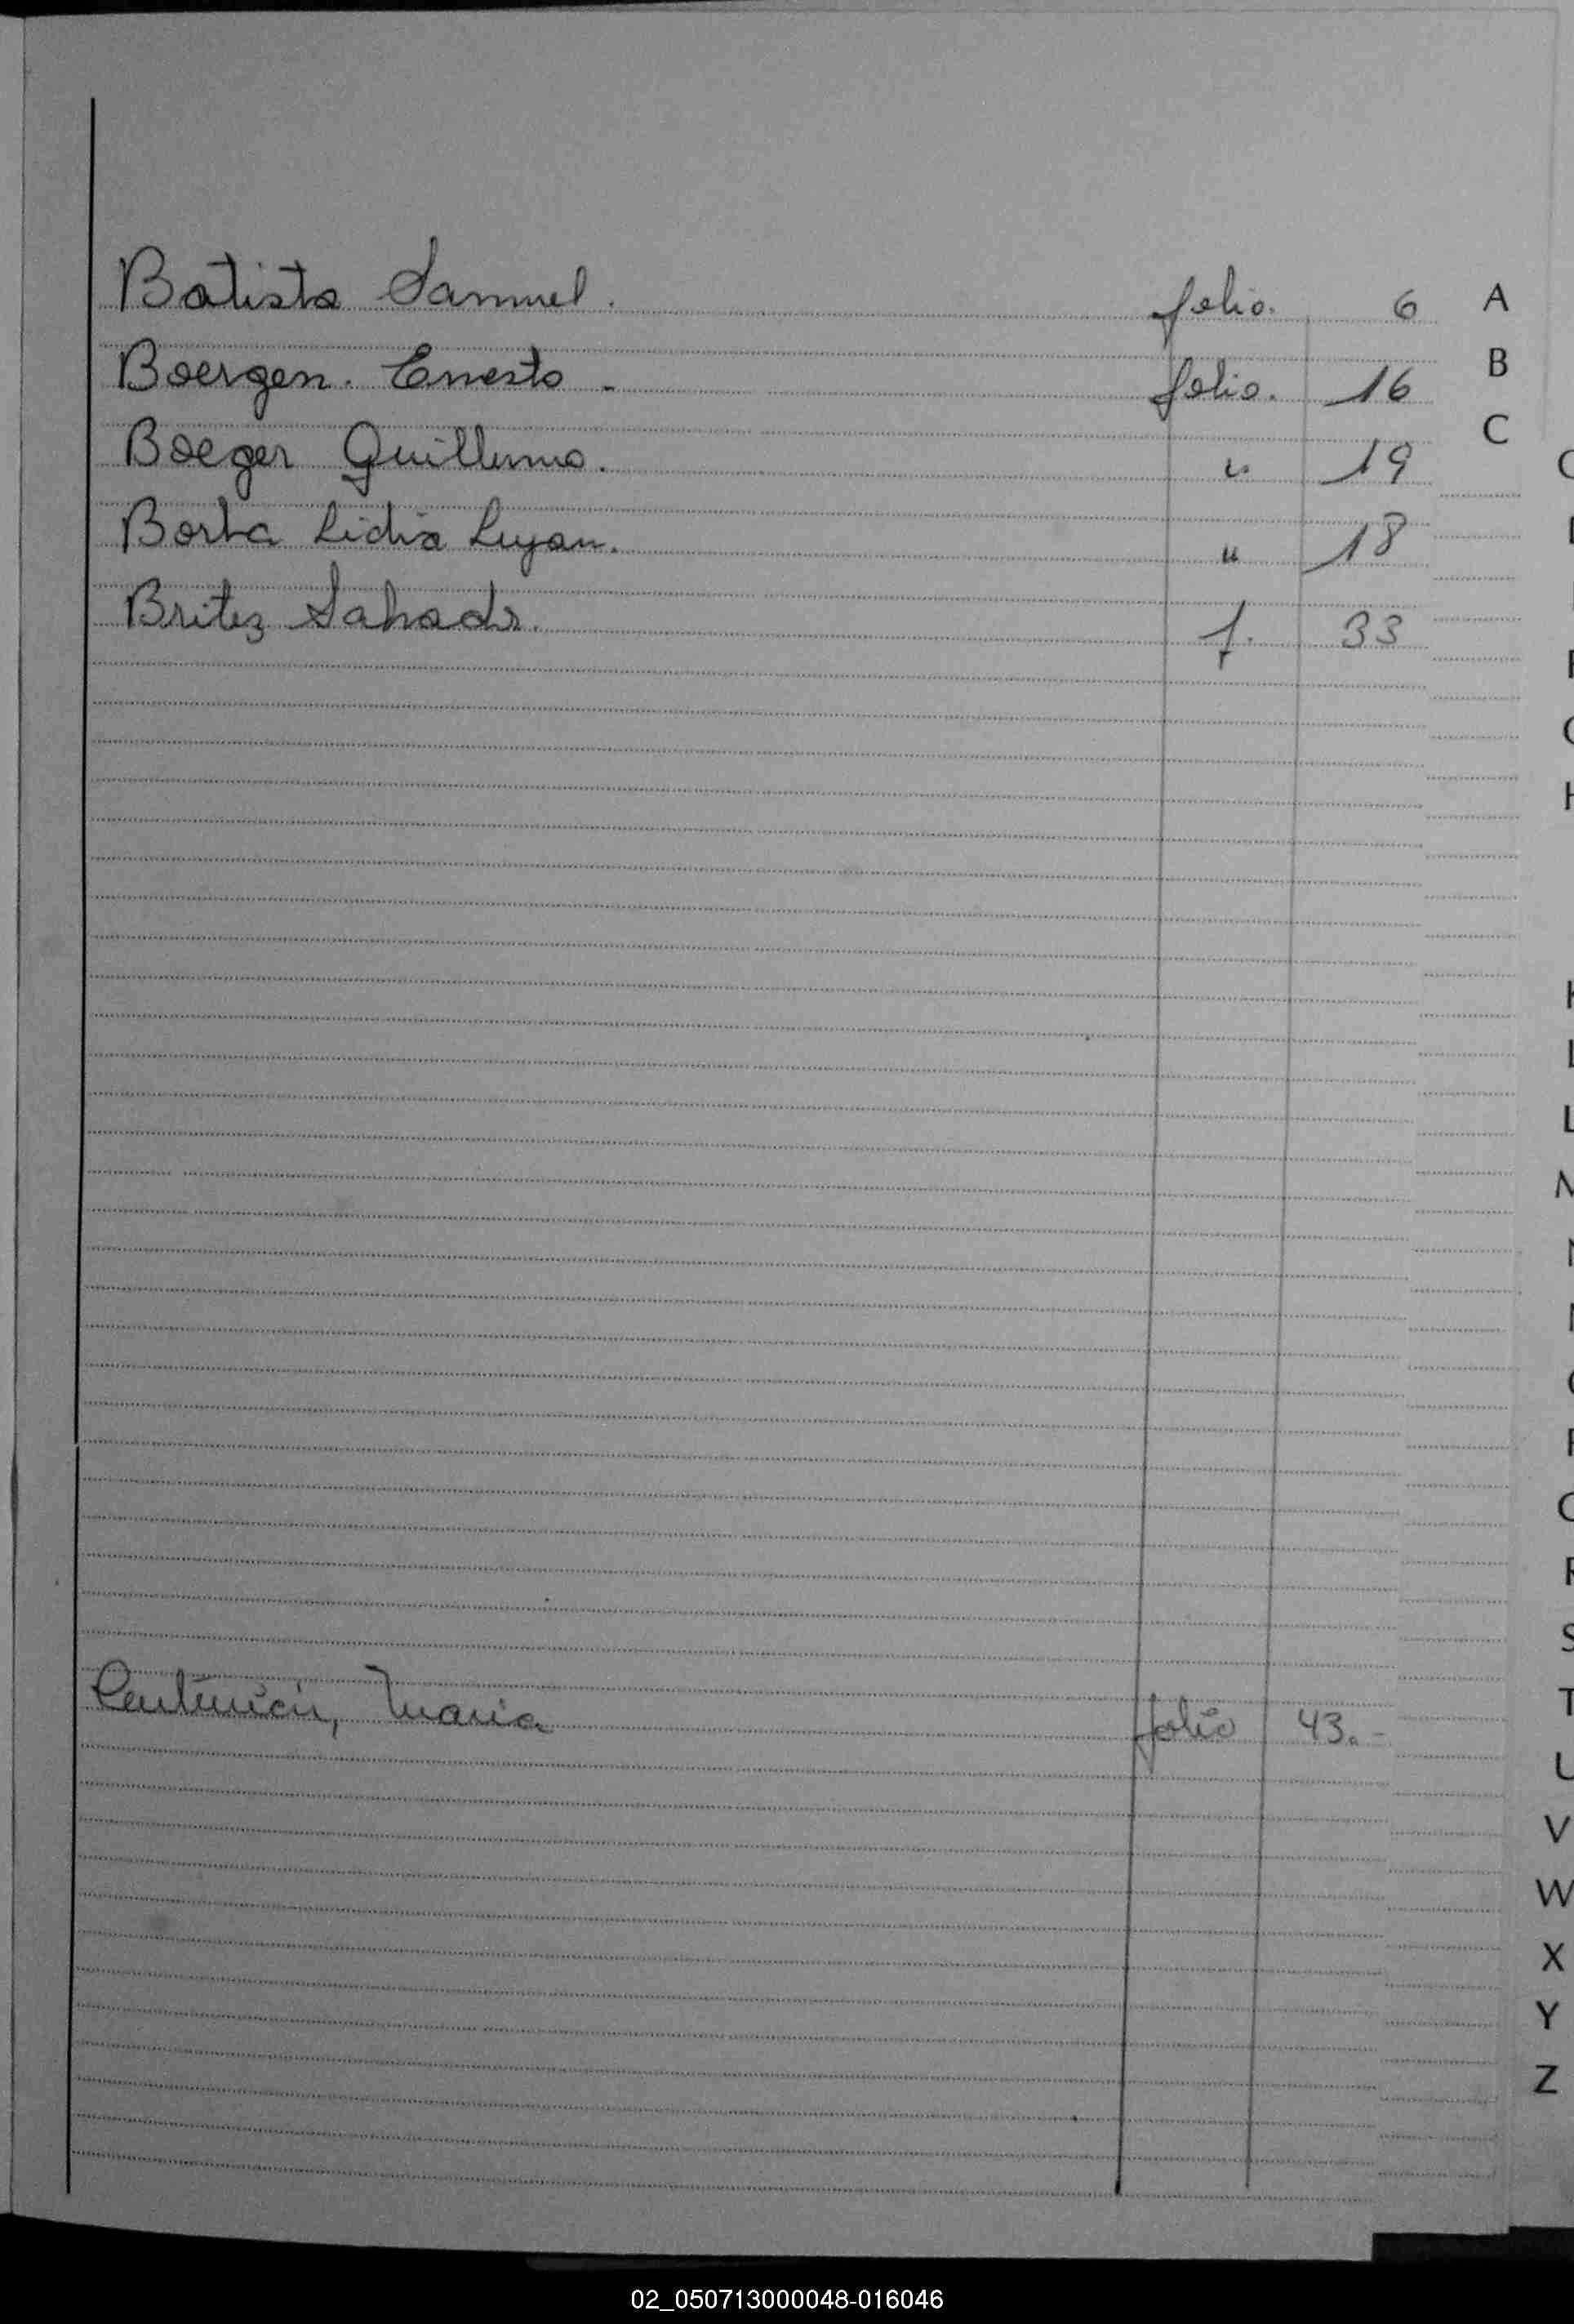 Batista Samuel. folio. 6 A
Boergen. Ernesto - folio. 16 B
C
Boeger Guillermo. " 19
Borba Lidia Lujan. " 18
Britez Salvador. f. 33
K
L
L
M
S
T
María folio 43.-
U
V
W
X
Y
Z
02_050713000048-016046